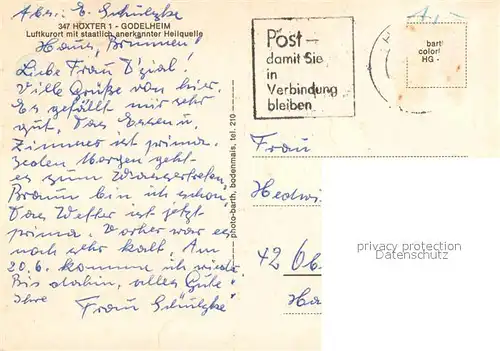 Abs.: E. Schülzke
347 HÖXTER 1 - GODELHEIM
Luftkurort mit staatlich anerkannter Heilquelle
Haus, Brunnen!
Liebe Frau
Viele Grüße von hier.
Es gefällt mir sehr
gut. Das Essen u.
Zimmer ist prima.
Jeden Morgen geht
es zum Wassertreten,
Braun bin ich schon,
Das Wetter ist jetzt
prima. Vorher war es
noch sehr kalt. Am
20.6. komme ich wieder.
Bis dahin, alles Gute
Ihre
Frau Schülzke
photo-barth, bodenmais, tel. 210
Post-
damit Sie
in
Verbindung
bleiben
bart
color
HG -
Frau
Hedwi
42 Ob
Ha
privacy protection
Datenschutz